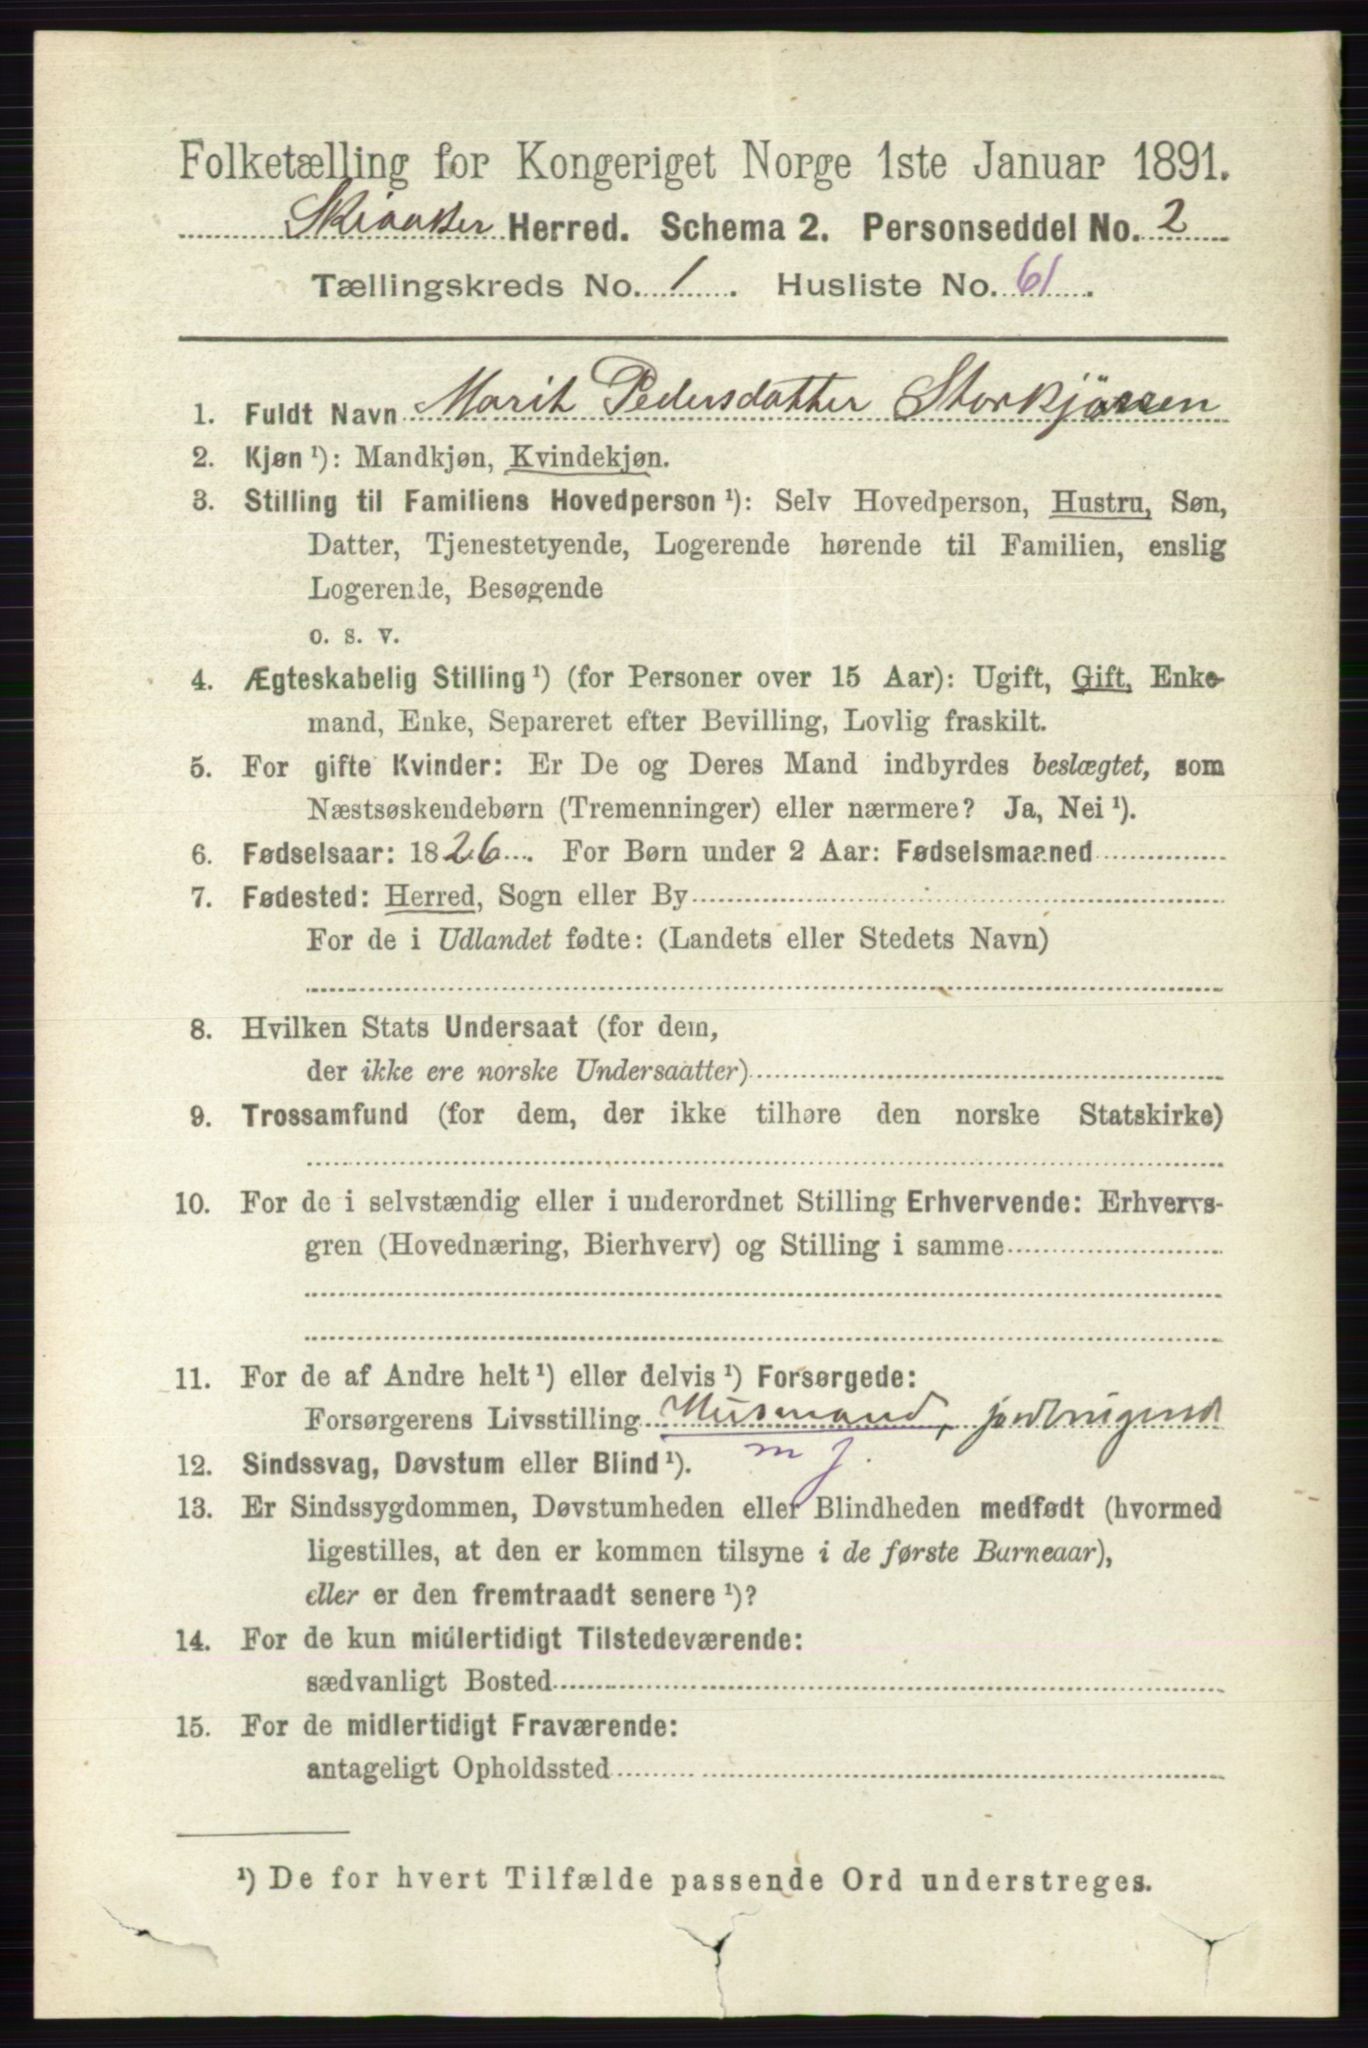 Folketælling for Kongeriget Norge 1ste Januar 1891.
Skiaaker Herred. Schema 2. Personseddel No. 2
Tællingskreds No. 1. Husliste No. 61.
1. Fuldt Navn Marit Pedersdatter Storkjörren
2. Kjøn ¹): Mandkjøn, Kvindekjøn.
3. Stilling til Familiens Hovedperson ¹): Selv Hovedperson, Hustru, Søn,
Datter, Tjenestetyende, Logerende hørende til Familien, enslig
Logerende, Besøgende
o. s. v.
4. Ægteskabelig Stilling ¹) (for Personer over 15 Aar): Ugift, Gift, Enke-
mand, Enke, Separeret efter Bevilling, Lovlig fraskilt.
5. For gifte Kvinder: Er De og Deres Mand indbyrdes beslægtet, som
Næstsøskendebørn (Tremenninger) eller nærmere? Ja, Nei ¹).
6. Fødselsaar: 1826. For Børn under 2 Aar: Fødselsmaaned
7. Fødested: Herred, Sogn eller By
For de i Udlandet fødte: (Landets eller Stedets Navn)
8. Hvilken Stats Undersaat (for dem,
der ikke ere norske Undersaatter)
9. Trossamfund (for dem, der ikke tilhøre den norske Statskirke)
10. For de i selvstændig eller i underordnet Stilling Erhvervende: Erhvervs-
gren (Hovednæring, Bierhverv) og Stilling i samme
11. For de af Andre helt ¹) eller delvis ¹) Forsørgede:
Forsørgerens Livsstilling Husmand, jordbrugende
m j.
12. Sindssvag, Døvstum eller Blind ¹).
13. Er Sindssygdommen, Døvstumheden eller Blindheden medfødt (hvormed
ligestilles, at den er kommen tilsyne i de første Barneaar),
eller er den fremtraadt senere ¹)?
14. For de kun midlertidigt Tilstedeværende:
sædvanligt Bosted
15. For de midlertidigt Fraværende:
antageligt Opholdssted
¹) De for hvert Tilfælde passende Ord understreges.